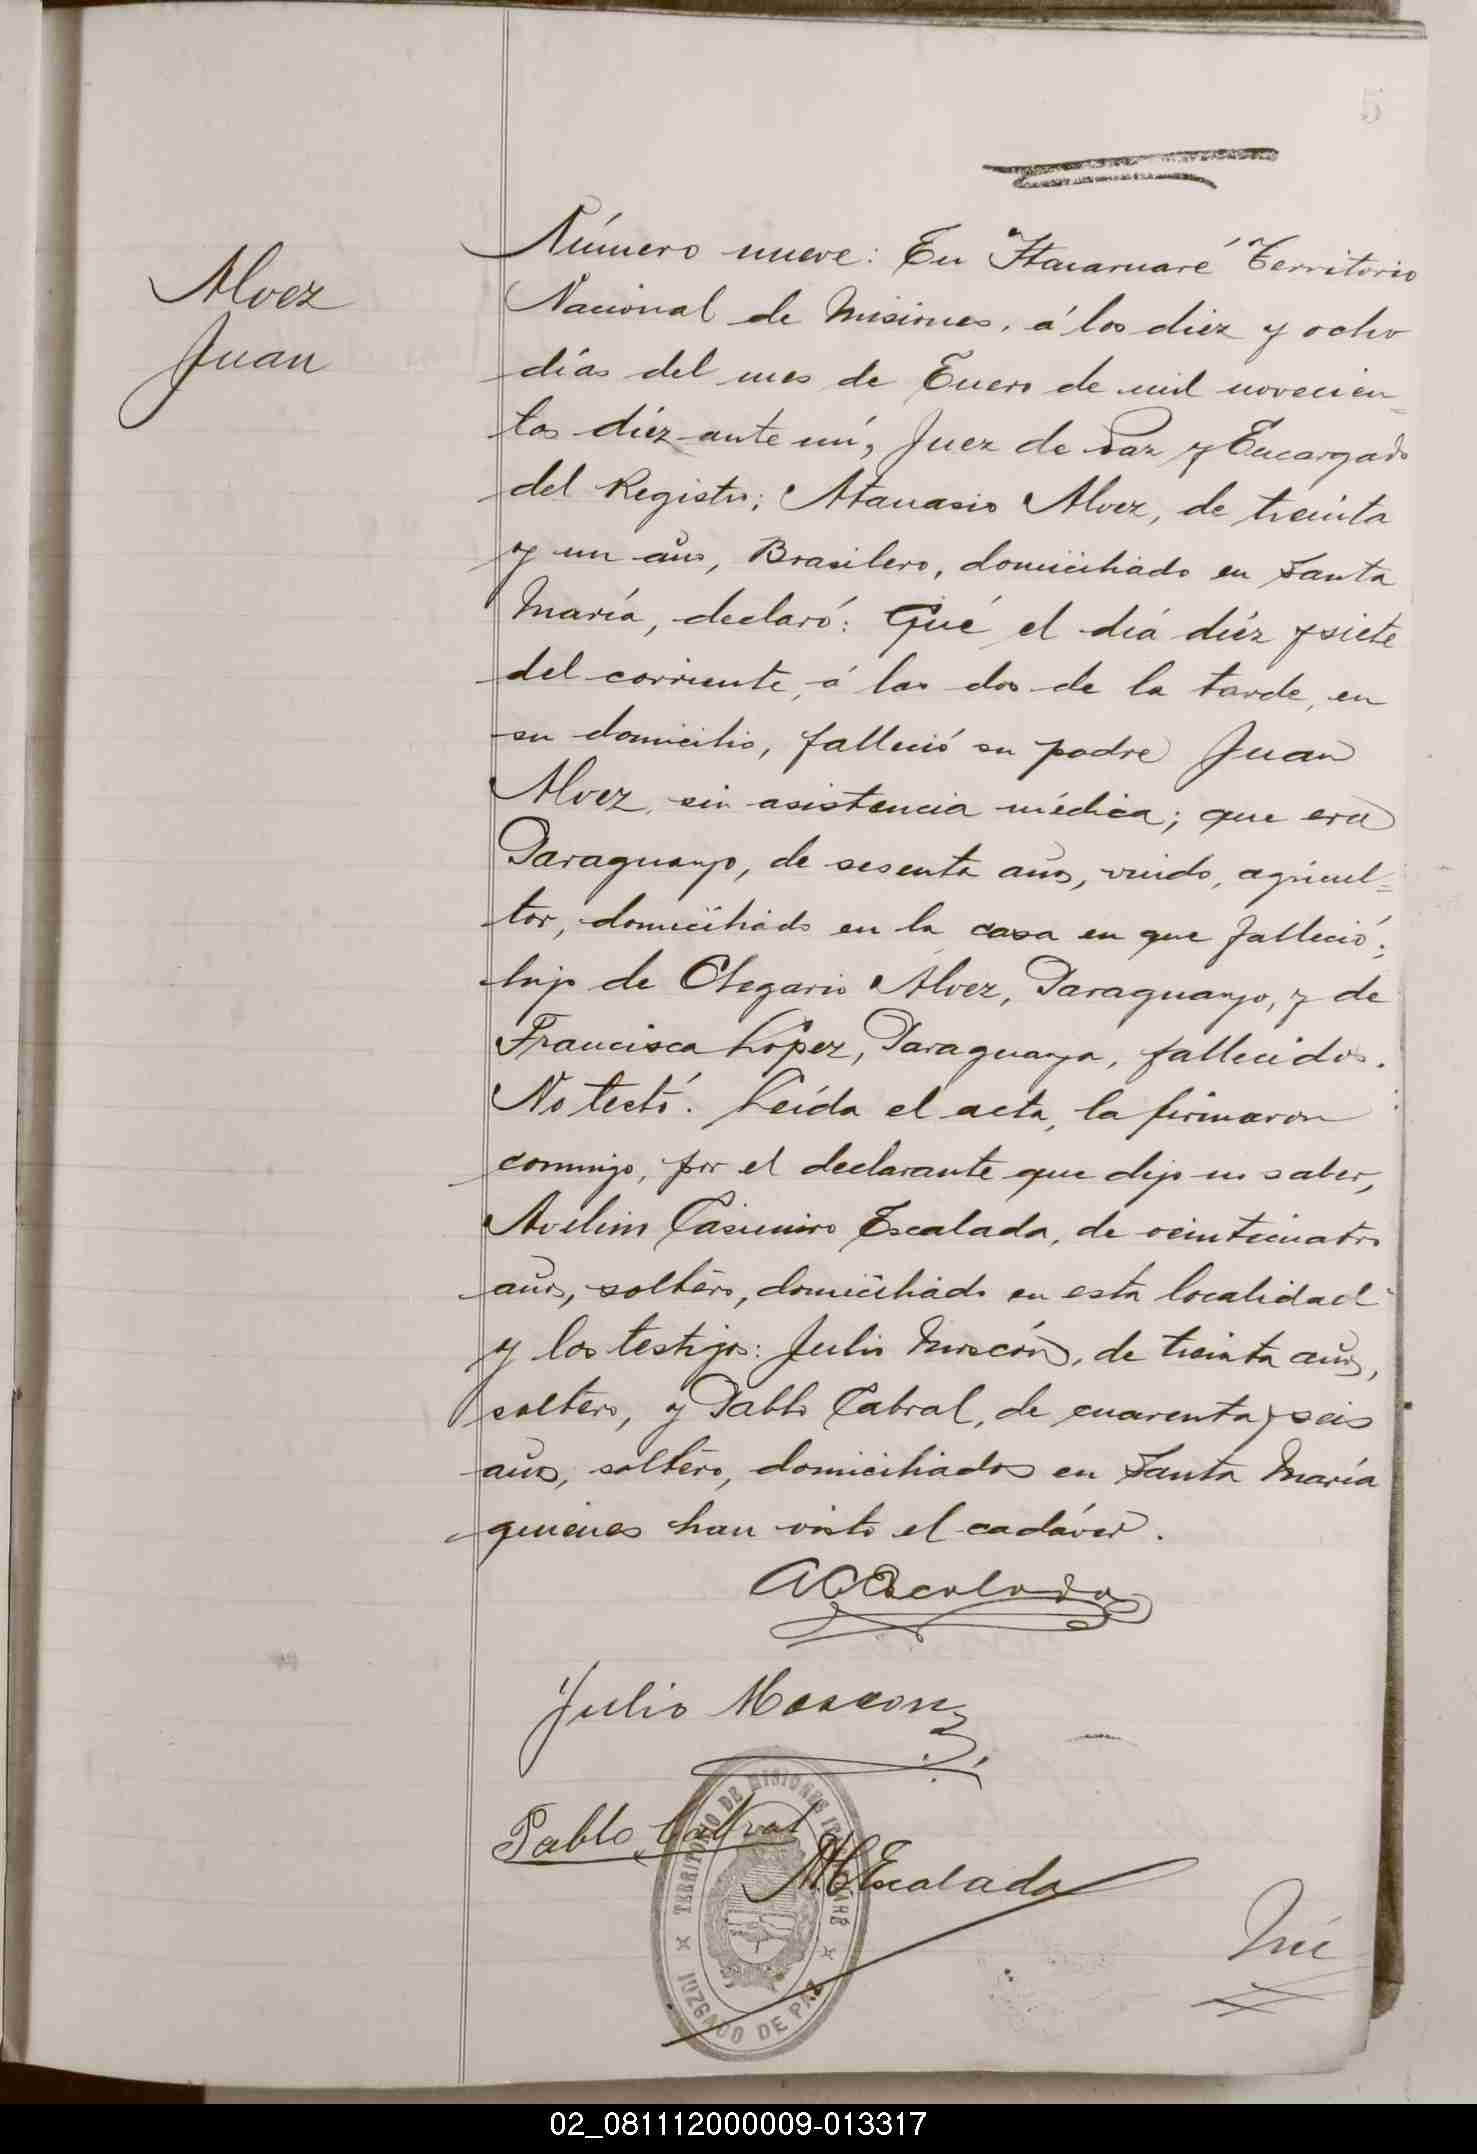 5
Alvez
Juan
Número nueve: En Itacaruaré Territorio
Nacional de Misiones, á los diez y ocho
días del mes de Enero de mil novecien=
tos diéz ante mí, Juez de Paz y Encargado
del Registro; Atanasio Alvez, de treinta
y un años, Brasilero, domiciliado en Santa
María, declaró: Qué el diá diéz y siete
del corriente, á las dos de la tarde, en
su domicilio, falleció su padre Juan
Alvez, sin asistencia médica; que era
Paraguayo, de sesenta años, viudo, agricul=
tor, domiciliado en la casa en que falleció;
hijo de Olegario Alvez, Paraguayo, y de
Francisca López, Paraguaya, fallecidos.
No testó. Leída el acta, la firmaron
conmigo, por el declarante que dijo no saber,
Avelino Casimiro Escalada, de veinticuatro
años, soltero, domiciliado en esta localidad
y los testigos: Julio Moscón, de treinta años,
soltero, y Pablo Cabral, de cuarenta y seis
años, soltero, domiciliados en Santa María
quienes han visto el cadáver.
A C Escalada
Julio Moscon
Pablo Cabral
Escalada
TERRITORIO DE MISIONES
JUZGADO DE PAZ
02_081112000009-013317